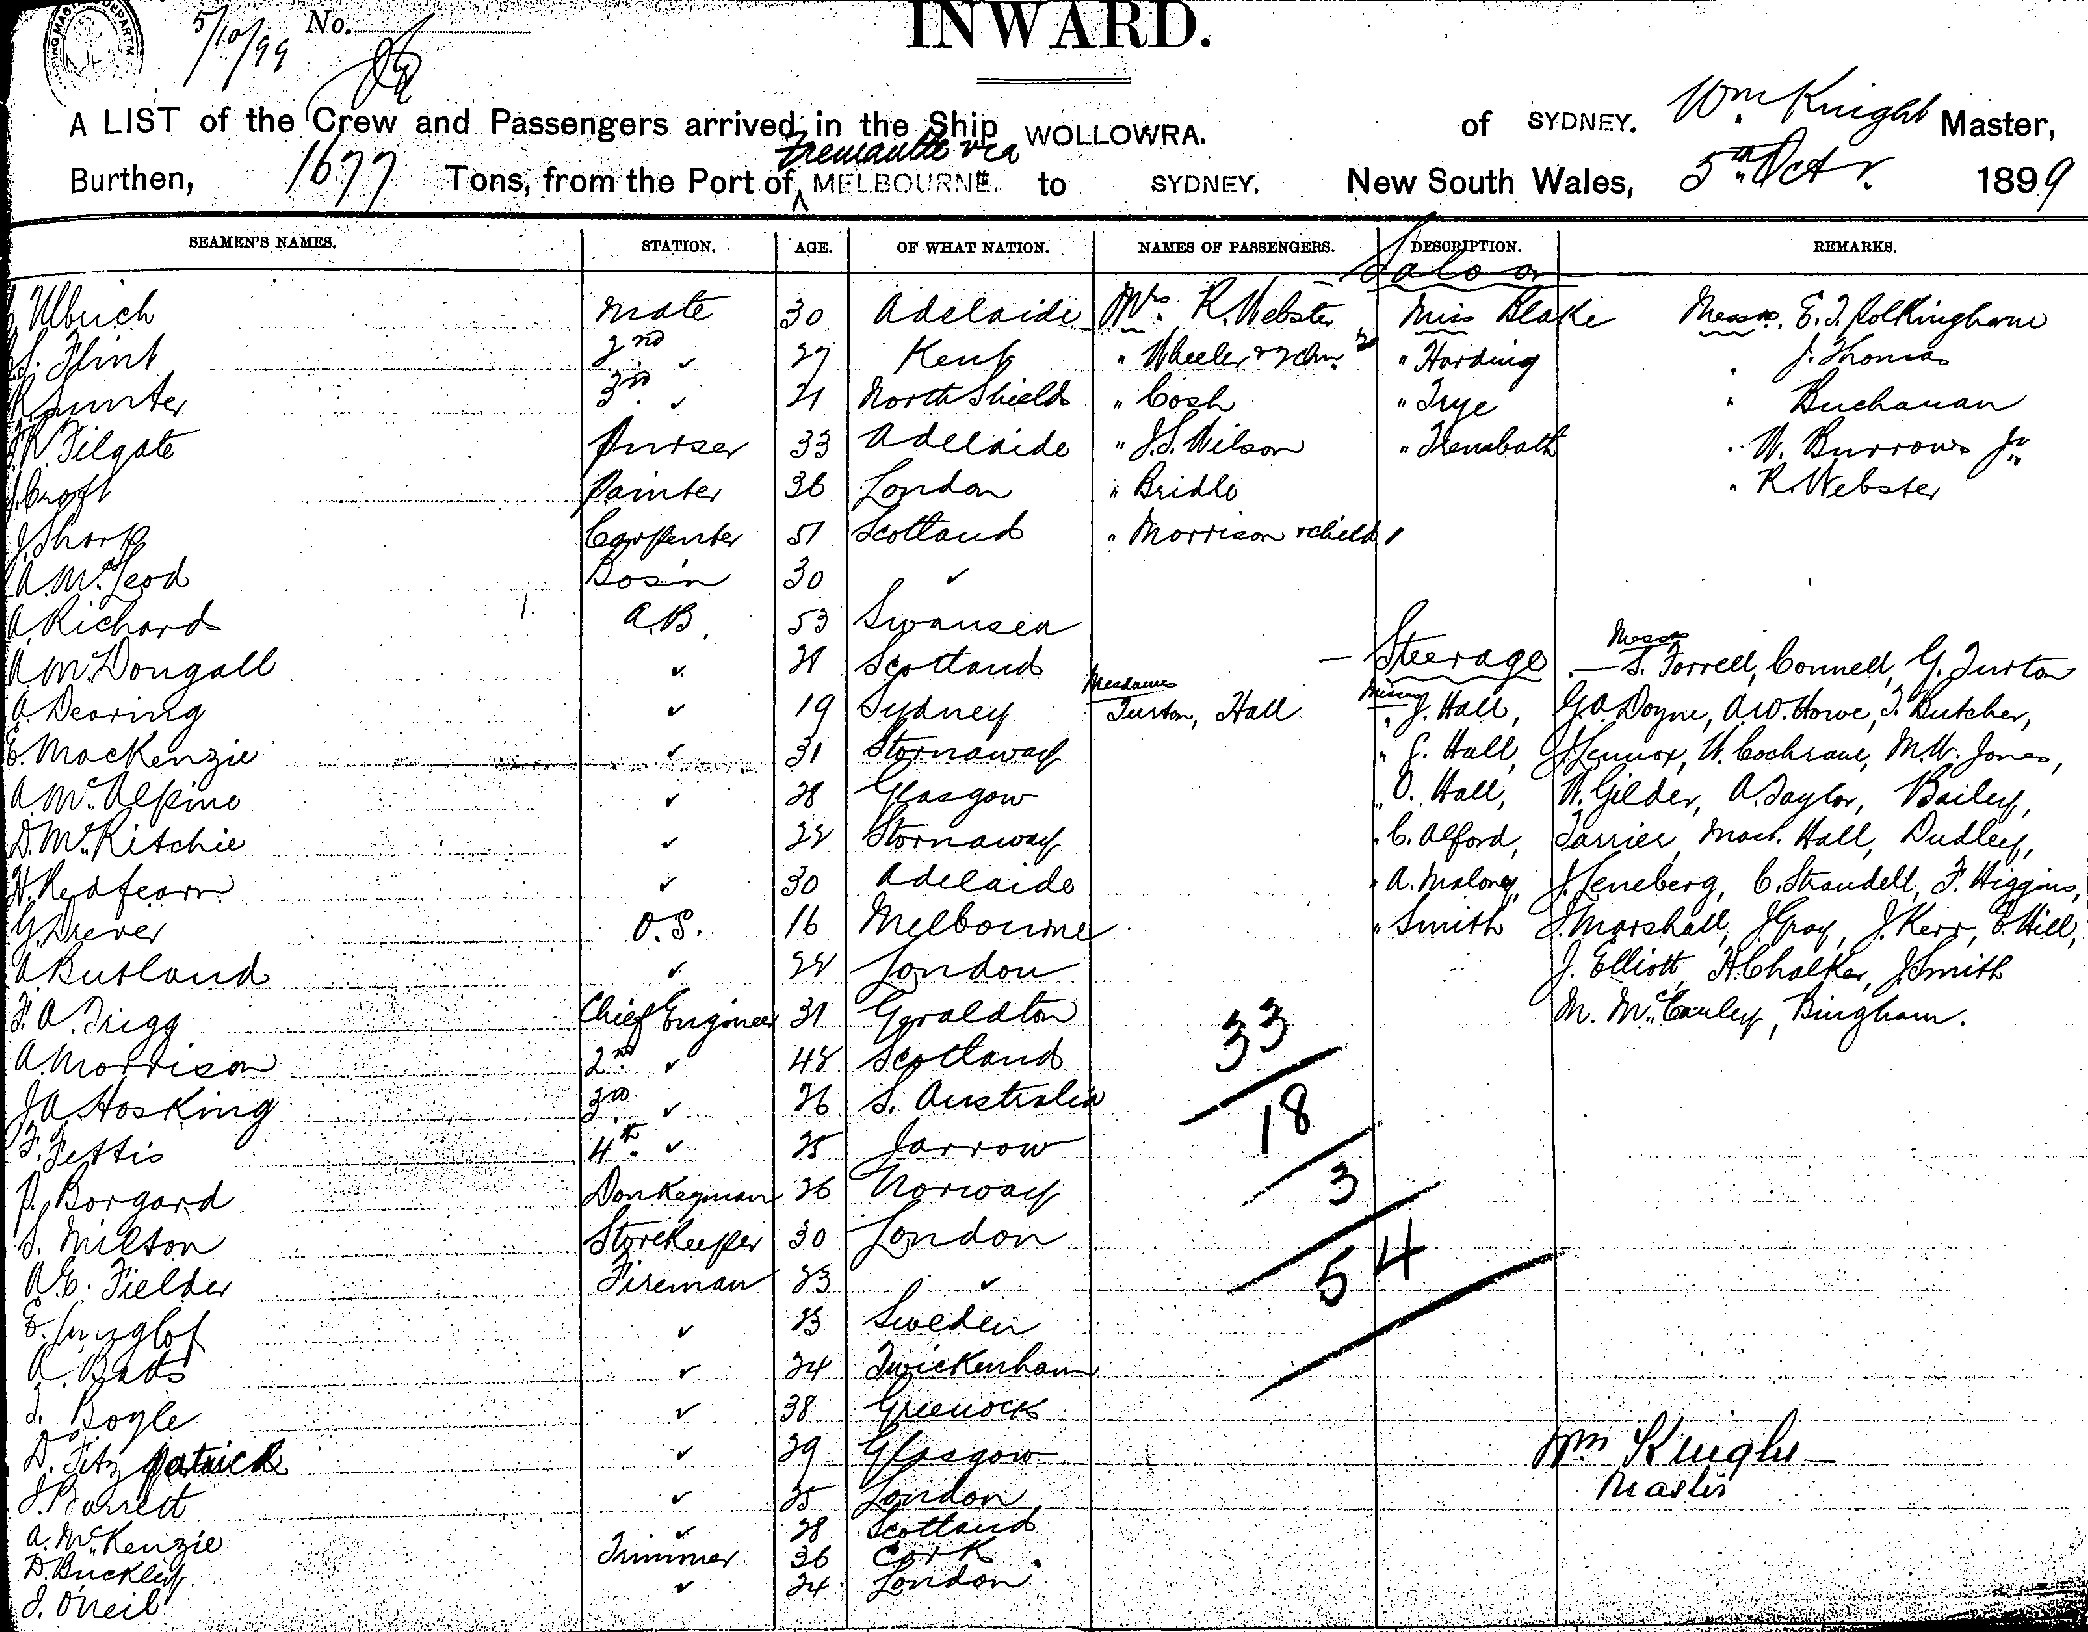 5/10/99 No.
INWARD.
A LIST of the Crew and Passengers arrived in the Ship WOLLOWRA. of SYDNEY. Wm Knight Master,
Burthen, 1677 Tons, from the Port of Fremantle via MELBOURNE. to SYDNEY. New South Wales, 5th Octr. 1899
SEAMEN'S NAMES. STATION. AGE. OF WHAT NATION. NAMES OF PASSENGERS. DESCRIPTION. REMARKS.
Saloon
Ulbrich Mate 30 Adelaide Mrs. R. Webster Miss Blake Messrs. E. J. Polkinghorne
S. Flint 2nd ✓ 27 Kent " Wheeler & 2 Chn. " Harding " J. Thomas
Hunter 3rd ✓ 21 North Shields " Cosh " Frye " Buchanan
Filgate Purser 33 Adelaide " J. S. Wilson " Trembath " W. Burrows Jr
J. Croft Painter 36 London " Bridle " R. Webster
J. Sharp Carpenter 51 Scotland " Morrison & child
A. McLeod Bosn 30 ✓
A. Richard A.B. 53 Swansea
A. McDougall ✓ 21 Scotland — Steerage — Messrs S. Forrell, Connell, G. Turton
A. Dearing ✓ 19 Sydney Mesdames Turton, Hall Misses J. Hall, G. A. Doyne, A. W. Howe, T. Butcher,
E. MacKenzie ✓ 31 Stornaway " G. Hall, J. Lennox, W. Cochrane, M. W. Jones,
A. McAlpine ✓ 28 Glasgow " O. Hall, W. Gilder, A. Taylor, Bailey,
D. McRitchie ✓ 22 Stornaway " C. Alford, Tarrier, Mast. Hall, Dudley,
H. Redfearn ✓ 30 Adelaide " A. Maloney, J. Leneberg, C. Strandell, F. Higgins,
G. Drever O.S. 16 Melbourne " Smith J. Marshall, J. Gray, J. Kerr, E. Hill,
A. Butland ✓ 22 London J. Elliott, H. Chalker, J. Smith
F. A. Trigg Chief Engineer 31 Geraldton M. McCauley, Bingham.
A. Morrison 2nd ✓ 48 Scotland 33
J. A. Hosking 3rd ✓ 26 S. Australia 18
F. Fettis 4th ✓ 25 Jarrow
P. Borgard Donkeyman 26 Norway 3
S. Milton Storekeeper 30 London
A. E. Fielder Fireman 23 ✓ 54
E. ✓ 23 Sweden
A. ✓ 24 Twickenham
T. Boyle ✓ 38 Greenock
D. Fitzpatrick ✓ 29 Glasgow Wm Knight
J. Barrett ✓ 25 London Master
A. McKenzie ✓ 28 Scotland
D. Buckley Trimmer 36 Cork
J. O'Neil ✓ 24 London